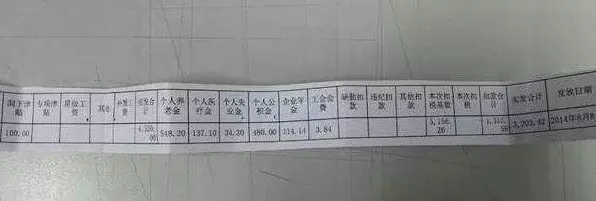 专项津贴
其他
补发工资
应发合计
个人养老金
个人医疗金
个人失业金
个人公积金
企业年金
工会会费
缺勤扣款
违纪扣款
其他扣款
本次扣税基数
本次扣税
扣款合计
实发合计
发放日期
100.00
548.20
137.10
34.30
480.00
114.14
3.84
3,203.42
2014年8月8